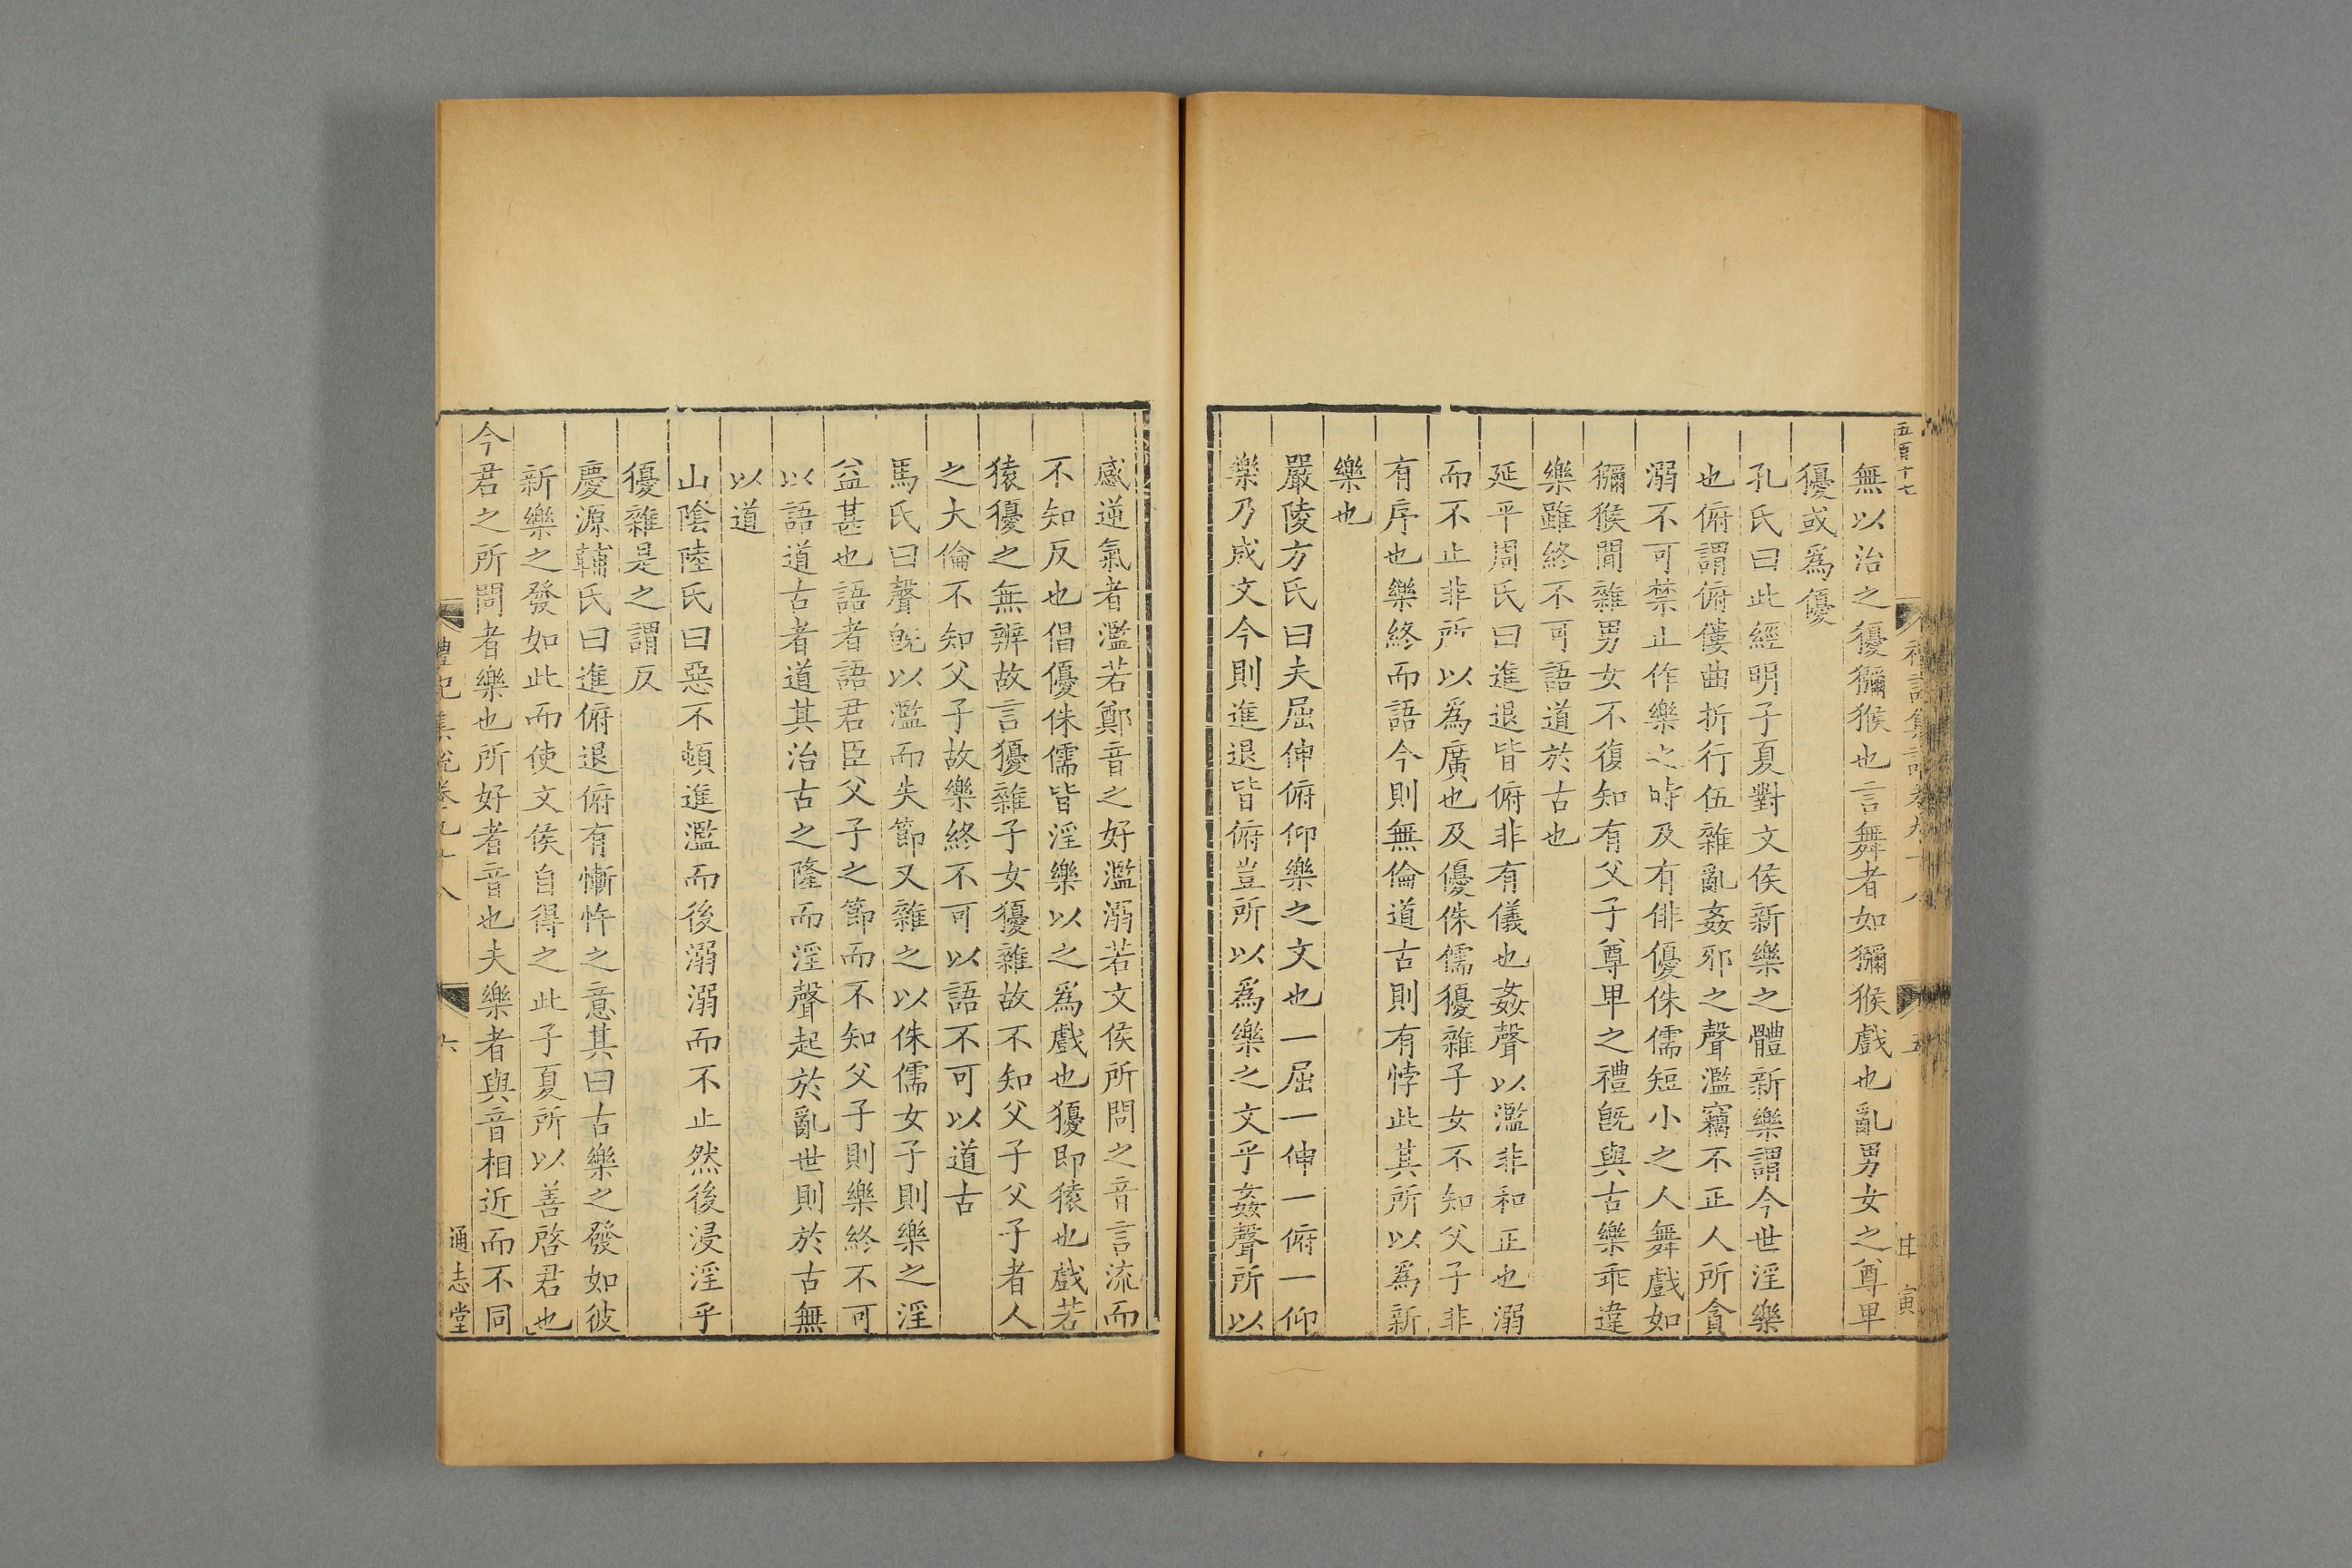 五百十七
禮記集說卷九十八
五
甘寅
無以治之獶獼猴也言舞者如獼猴戲也亂男女之尊卑
獶或為優
孔氏曰此經明子夏對文侯新樂之體新樂謂今世淫樂
也俯謂俯僂曲折行伍雜亂姦邪之聲濫竊不正人所貪
溺不可禁止作樂之時及有俳優侏儒短小之人舞戲如
獼猴間雜男女不復知有父子尊卑之禮旣與古樂乖違
樂雖終不可語道於古也
延平周氏曰進退皆俯非有儀也姦聲以濫非和正也溺
而不止非所以為廣也及優侏儒獶雜子女不知父子非
有序也樂終而語今則無倫道古則有悖此其所以為新
樂也
嚴陵方氏曰夫屈伸俯仰樂之文也一屈一伸一俯一仰
樂乃成文今則進退皆俯豈所以為樂之文乎姦聲所以
感逆氣者濫若鄭音之好濫溺若文侯所問之音言流而
不知反也倡優侏儒皆淫樂以之為戲也獶即猿也戲若
猿獶之無辨故言獶雜子女獶雜故不知父子父子者人
之大倫不知父子故樂終不可以語不可以道古
馬氏曰聲旣以濫而失節又雜之以侏儒女子則樂之淫
益甚也語者語君臣父子之節而不知父子則樂終不可
以語道古者道其治古之隆而淫聲起於亂世則於古無
以道
山陰陸氏曰惡不頓進濫而後溺溺而不止然後浸淫乎
獶雜是之謂反
慶源輔氏曰進俯退俯有慚忤之意其曰古樂之發如彼
新樂之發如此而使文侯自得之此子夏所以善啓君也
今君之所問者樂也所好者音也夫樂者與音相近而不同
禮記集說卷九十八
六
通志堂